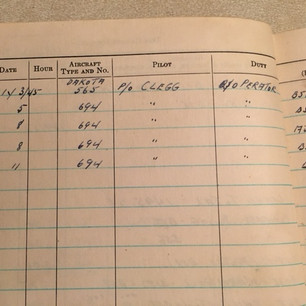 DATE HOUR AIRCRAFT TYPE AND NO. PILOT DUTY
DAKOTA
1/3/45 565 P/O CLEGG W/OPERATOR
5 694 " "
8 694 " "
8 694 " "
11 694 " "